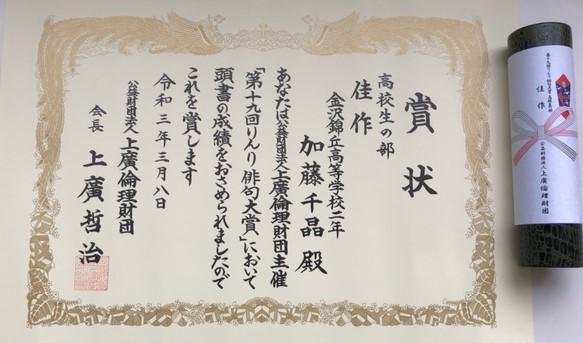 賞状
高校生の部
佳作
金沢錦丘高等学校二年
加藤千晶殿
あなたは公益財団法人上廣倫理財団主催
「第十九回りんり俳句大賞」において
頭書の成績をおさめられましたので
これを賞します
令和三年三月八日
公益財団法人上廣倫理財団
会長 上廣哲治
佳作
公益財団法人上廣倫理財団